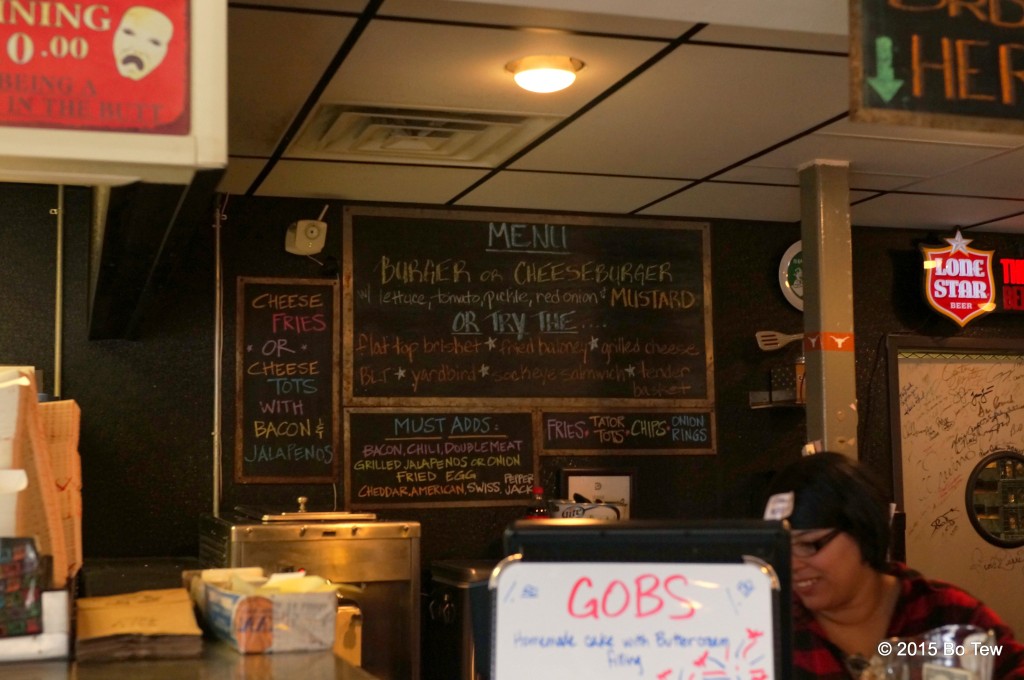 NING
0.00
BEING A
IN THE BUTT
HER
MENU
BURGER OR CHEESEBURGER
W/ lettuce, tomato, pickle, red onion & MUSTARD
OR TRY THE....
flat top brisket * fried baloney * grilled cheese
BLT * yardbird * sockeye salmwich * tender
basket
CHEESE
FRIES
* OR *
CHEESE
TOTS
WITH
BACON &
JALAPENOS
MUST ADDS:
BACON, CHILI, DOUBLE MEAT
GRILLED JALAPENOS OR ONION
FRIED EGG
CHEDDAR, AMERICAN, SWISS, PEPPER JACK
FRIES * TATOR TOTS * CHIPS * ONION RINGS
LONE
STAR
BEER
GOBS
Homemade cake with Buttercream
filling
© 2015 Bo Tew